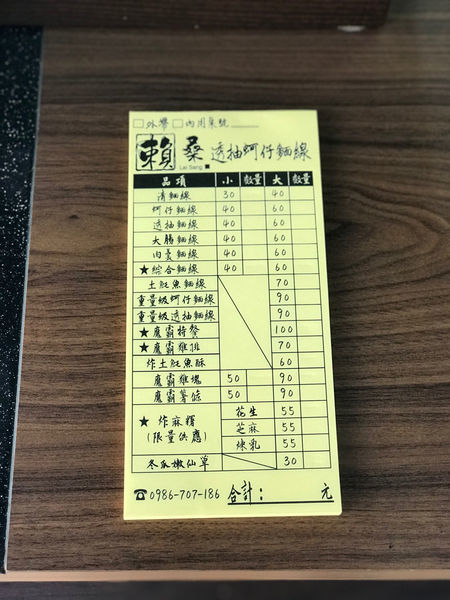 □外帶 □內用桌號____
賴桑 透抽蚵仔麵線
Lai Sang
品項 小 數量 大 數量
清麵線 30 40
蚵仔麵線 40 60
透抽麵線 40 60
大腸麵線 40 60
肉羹麵線 40 60
★綜合麵線 40 60
土魠魚麵線 70
重量級蚵仔麵線 90
重量級透抽麵線 90
★魔霸特餐 100
★魔霸雞排 70
炸土魠魚酥 60
魔霸雞塊 50 90
魔霸薯條 50 90
★炸麻糬
(限量供應)
花生 55
芝麻 55
煉乳 55
冬瓜嫩仙草 30
☎0986-707-186 合計：____元